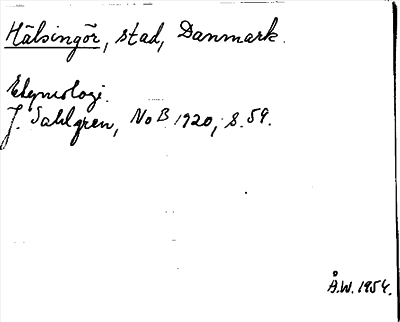 Hälsingör, stad, Danmark.
Etymologi.
J. Sahlgren, NoB 1920, s. 59.
Å.W. 1954.